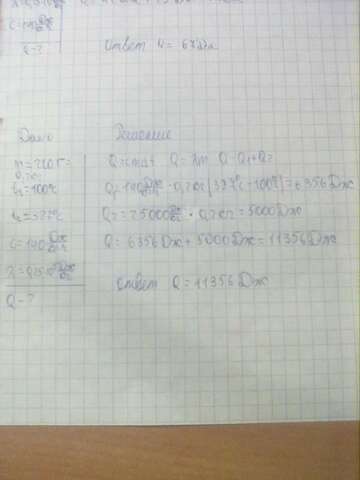 Q-?
Ответ N=
Дано
Решение
m=200г=
0,2кг
t₁=100°C
t₂=327°C
c=140 Дж/кг°C
λ=0,25·10⁵ Дж/кг
Q-?
Q=cmΔt Q=λm Q=Q₁+Q₂
Q₁=140 Дж/кг°C · 0,2кг(327°C-100°C)=6356Дж
Q₂=25000 Дж/кг · 0,2кг=5000Дж
Q=6356Дж+5000Дж=11356Дж
Ответ Q=11356Дж